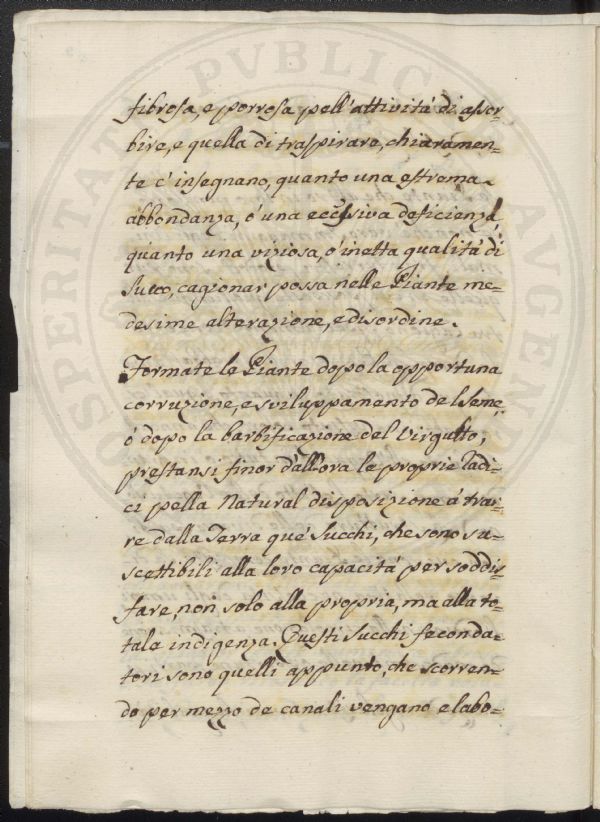 fibrosa, e porrosa pell'attivitá di assor-
bire, e quella di traspirare, chiaramen-
te c'insegnano, quanto una estrema
abbondanza, ó una eccessiva deficienza,
quanto una viziosa, ó inetta qualitá di
Succo, cagionar possa nelle Piante me-
desime alterazione, e disordine.
Formate le Piante dopo la opportuna
corruzione, e sviluppamento del Seme,
ó dopo la barbificazione del Virgulto,
prestansi finor d'all'ora le proprie Radi-
ci pella Natural disposizione á trar-
re dalla Terra qué Succhi, che sono su-
scettibili alla loro capacitá per soddis-
fare, non solo alla propria, ma alla to-
tale indigenza. Questi Succhi feconda-
tori sono quelli appunto, che scorren-
do per mezzo de canali vengano elabo-
PUBLIC
AUGENDAE